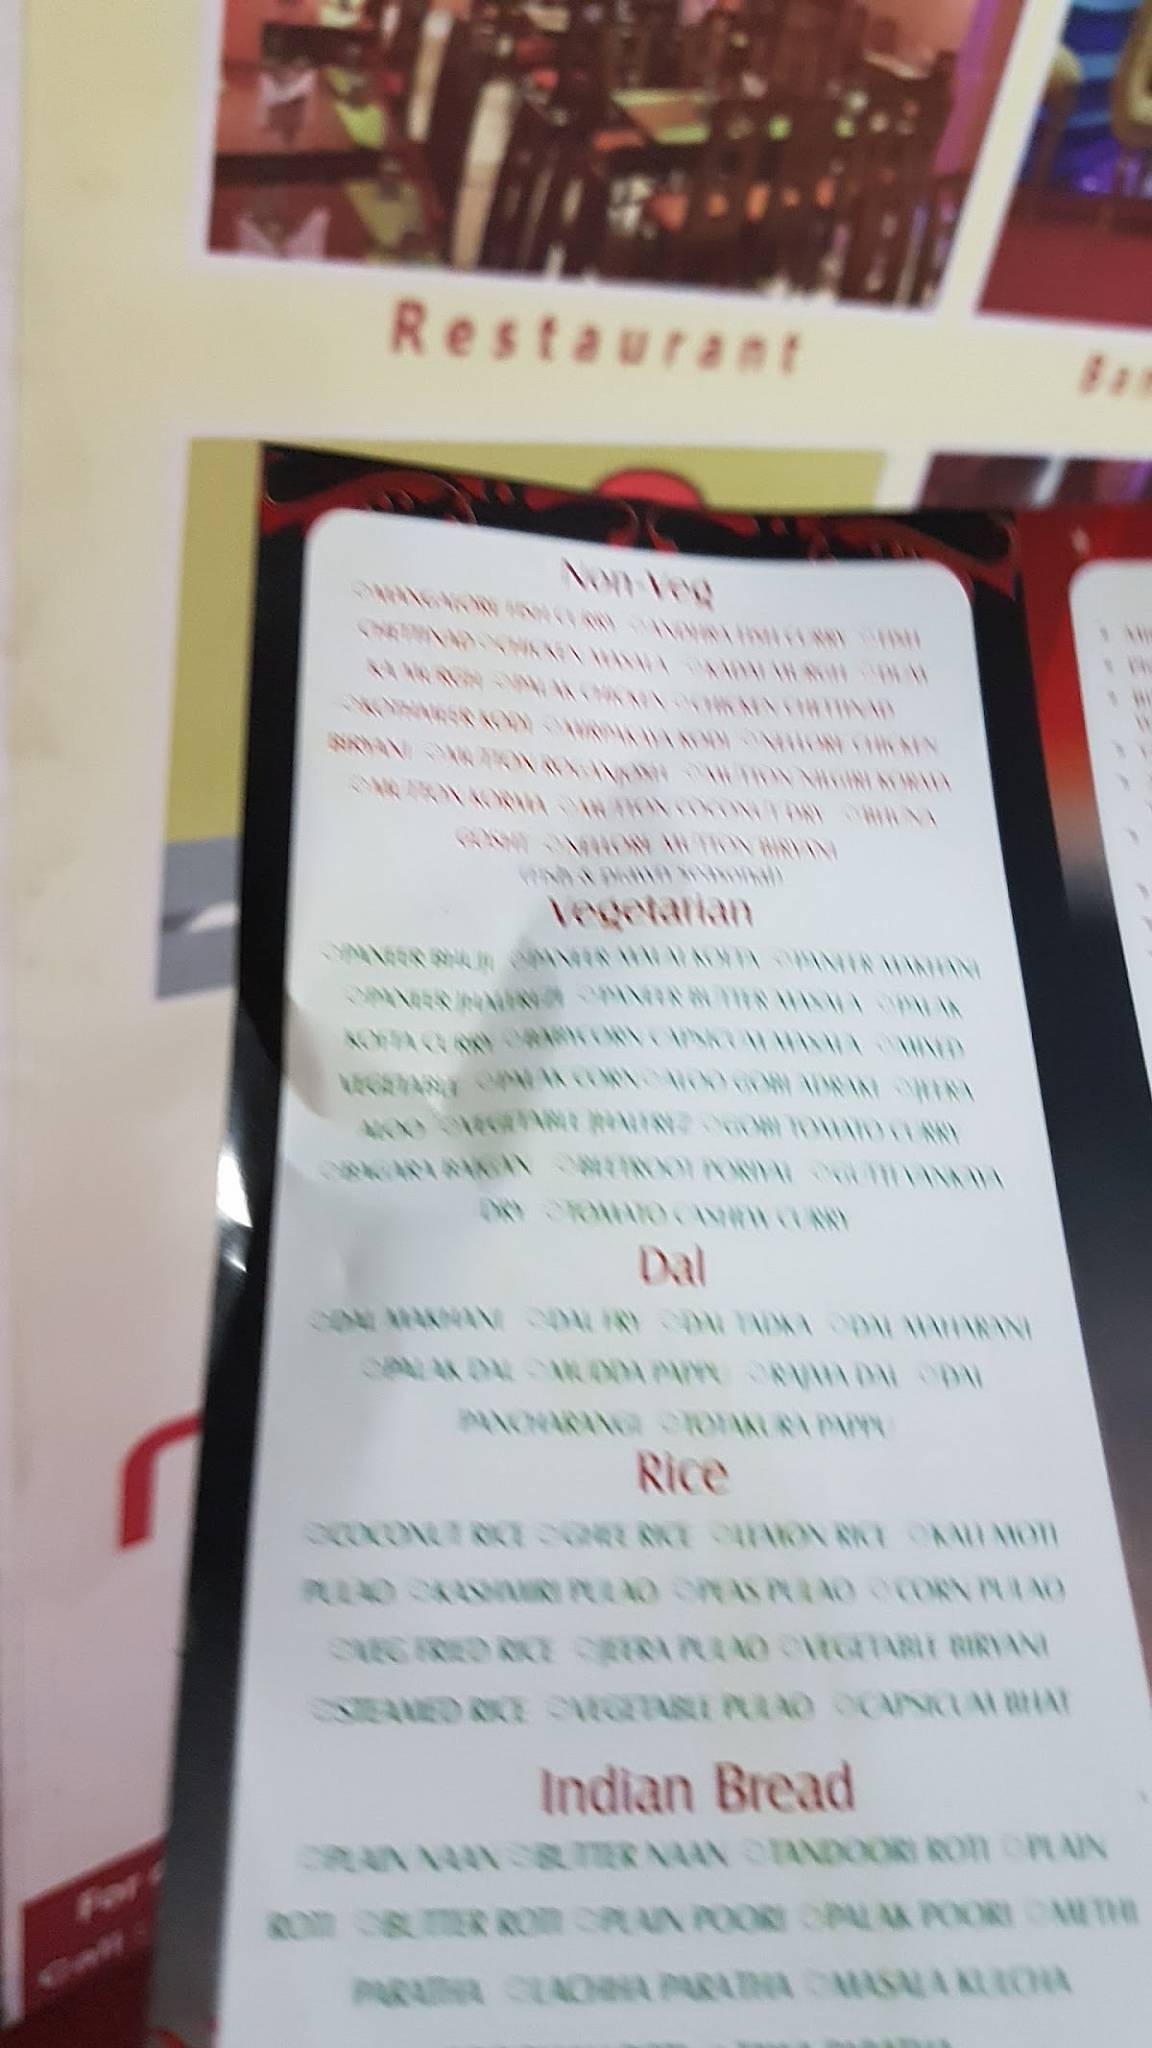 Restaurant
Non-Veg
♡MANGALORE FISH CURRY ♡ANDHRA FISH CURRY ♡FISH
CHETTINAD ♡CHICKEN MASALA ♡KADAI MURGH
KA MURGH ♡PALAK CHICKEN ♡CHICKEN CHETTINAD
KODI ♡MIRPAKAYA KODI ♡NELLORE CHICKEN
BIRYANI ♡MUTTON ROGANJOSH ♡MUTTON NILGIRI KORMA
♡MUTTON KORMA ♡MUTTON COCONUT DRY ♡BHUNA
GOSHT ♡NELLORE MUTTON BIRYANI
(Fish & prawn seasonal)
Vegetarian
♡PANEER BHURJI ♡PANEER MALAI KOFTA ♡PANEER MAKHANI
♡PANEER JHALFREZI ♡PANEER BUTTER MASALA ♡PALAK
KOFTA CURRY ♡BABYCORN CAPSICUM MASALA ♡MIXED
VEGETABLE ♡PALAK CORN♡ALOO GOBI ADRAKI ♡JEERA
ALOO ♡VEGETABLE JHALFREZ ♡GOBI TOMATO CURRY
♡BAGARA BAIGAN ♡BEETROOT PORIYAL ♡GUTTI VANKAYA
DRY ♡TOMATO CASHEW CURRY
Dal
♡DAL MAKHANI ♡DAL FRY ♡DAL TADKA ♡DAL MAHARANI
♡PALAK DAL ♡MUDDA PAPPU ♡RAJMA DAL ♡DAL
PANCHARANGI ♡TOTAKURA PAPPU
Rice
♡COCONUT RICE ♡GHEE RICE ♡LEMON RICE ♡KALI MOTI
PULAO ♡KASHMIRI PULAO ♡PEAS PULAO ♡CORN PULAO
♡VEG FRIED RICE ♡JEERA PULAO ♡VEGETABLE BIRYANI
♡STEAMED RICE ♡VEGETABLE PULAO ♡CAPSICUM BHAT
Indian Bread
♡PLAIN NAAN ♡BUTTER NAAN ♡TANDOORI ROTI ♡PLAIN
ROTI ♡BUTTER ROTI ♡PLAIN POORI ♡PALAK POORI ♡METHI
PARATHA ♡LACHHA PARATHA ♡MASALA KULCHA
For
Call